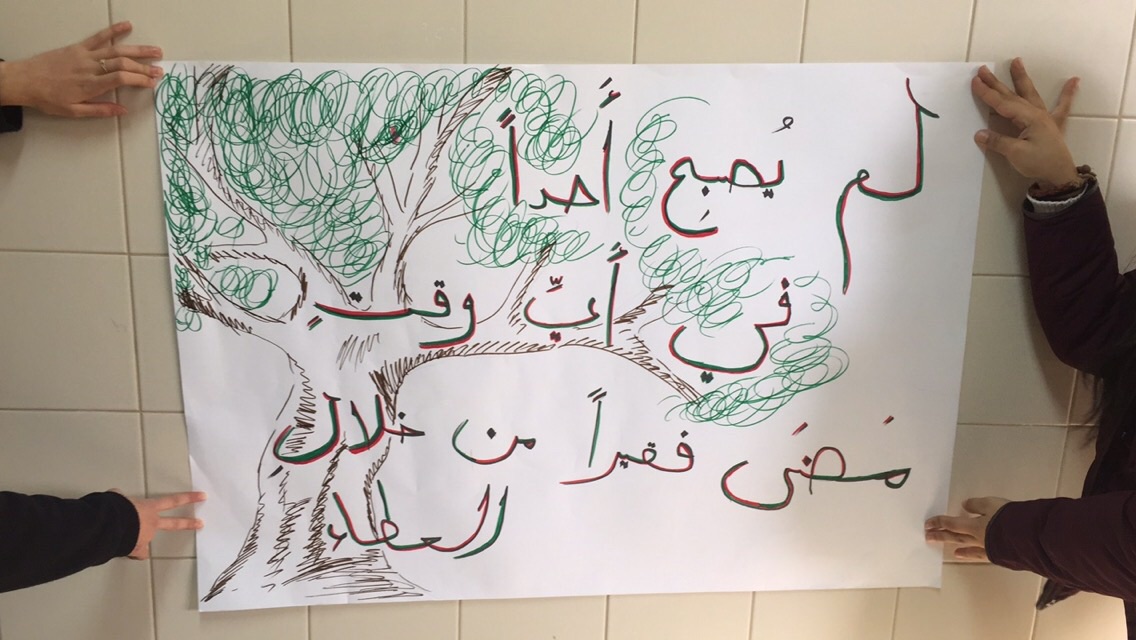 لم يُصبَح أَحداً
في أَيِّ وقتٍ
مَضَى فقيراً من خلالِ
العطاء